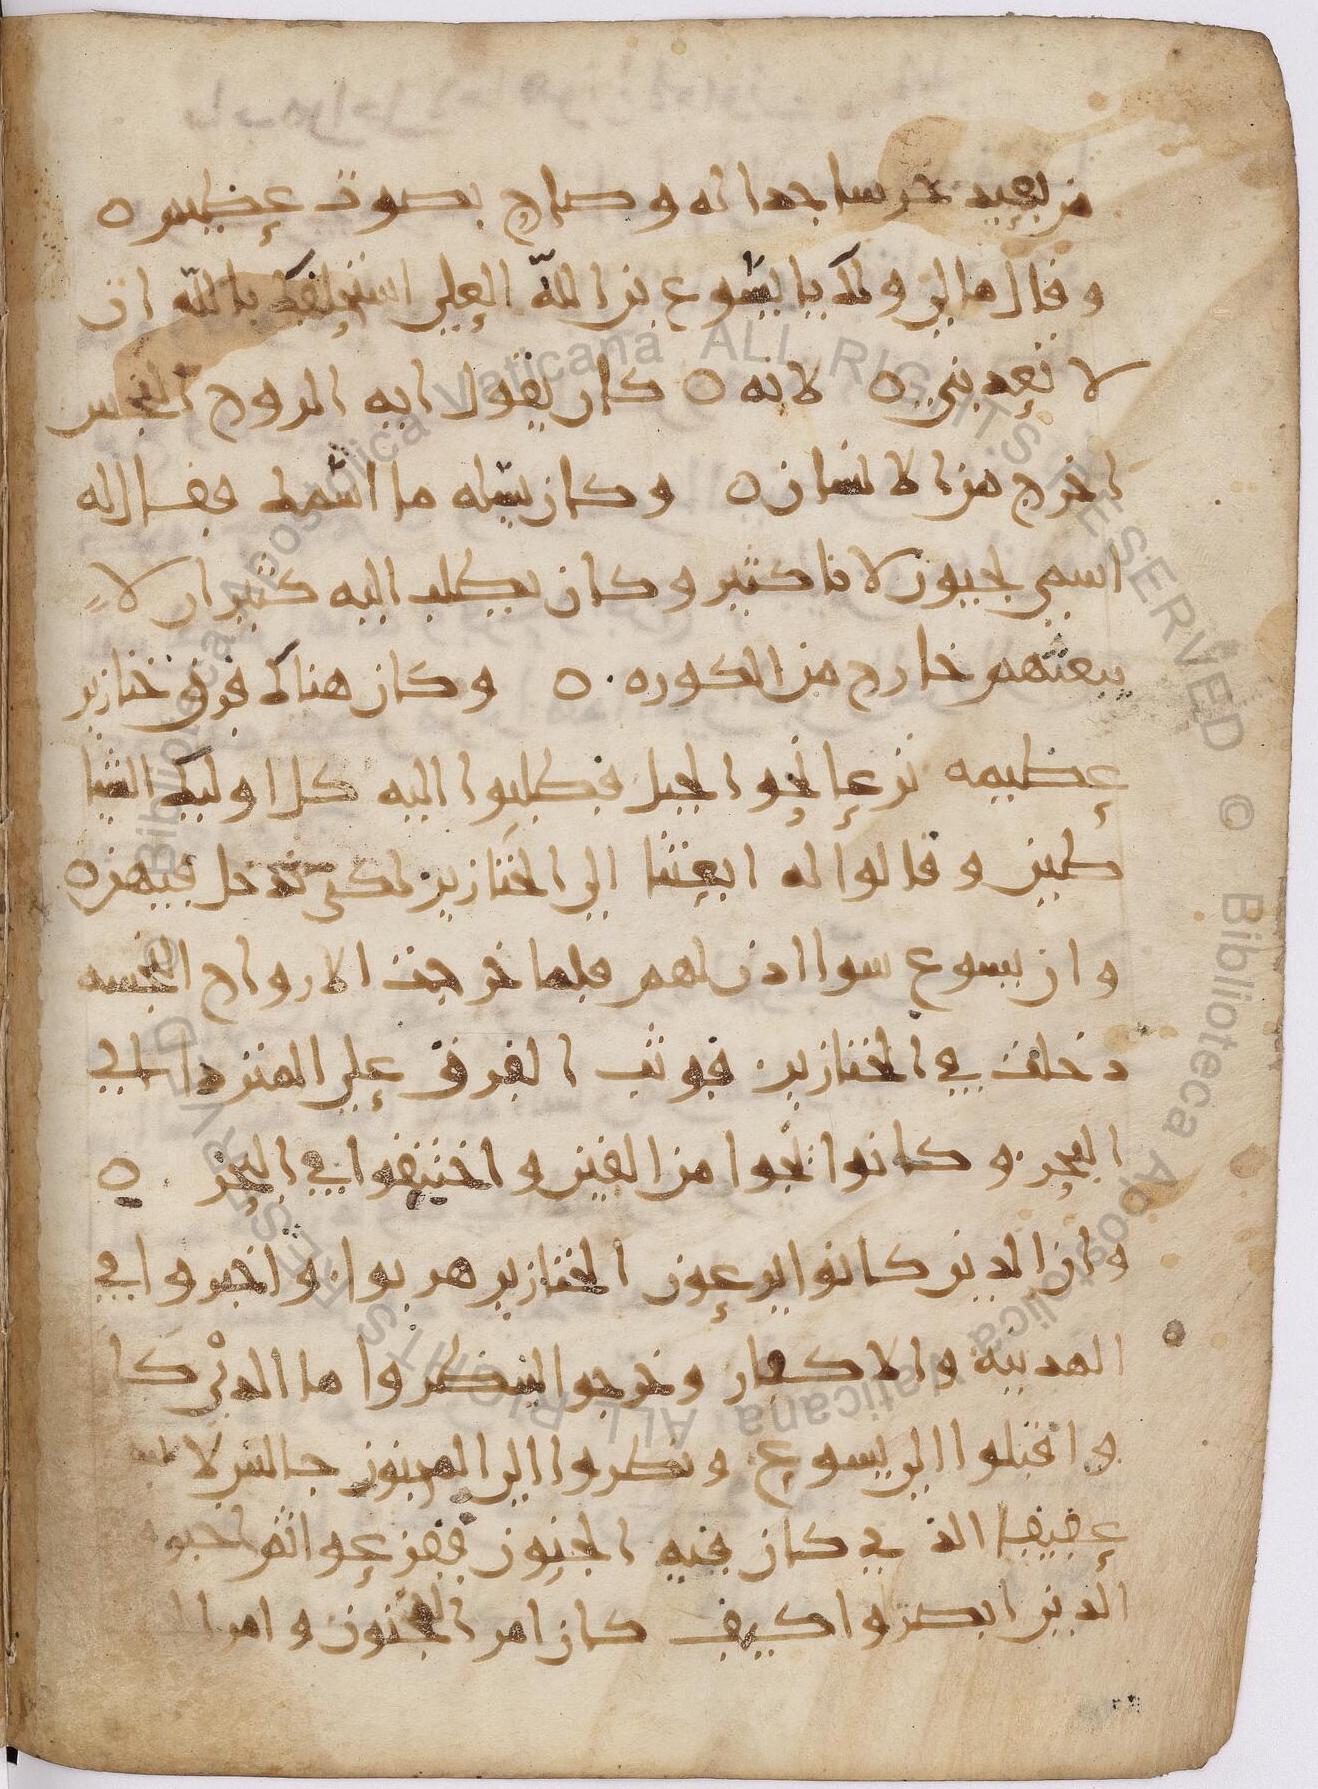 من بعيد خر ساجدا له وصاح بصوت عظيم ه
وقال ما لي ولك يا يسوع بن الله العلي استحلفك بالله ان
لا تعذبني ه لانه ه كان يقول ايه الروح النجس
اخرج من الانسان ه وكان يسله ما اسمك فقال له
اسمي لجيون لانا كثير وكان يطلب اليه كثير ان لا
يبعثهم خارج من الكوره ه وكان هناك فرق خنازير
عظيمه ترعا نحو الجبل فطلبوا اليه كل اوليك الشيا
طين وقالوا له ابعثنا الى الخنازير لكي ندخل فيهن ه
وان يسوع سوا اذن لهم فلما خرجت الارواح النجسه
دخلت في الخنازير فوثب الفرق على المنزدا الى
البحر وكانوا نحوا من الفين واختنقوا في البحر ه
وان الذين كانوا يرعون الخنازير هربوا واخبروا في
المدينة والاكفار وخرجوا لينظروا ما الذي كا
واقبلوا الى يسوع ونظروا الى المجنون جالس لا
عفيفا الذي كان فيه الجنون ففزعوا ثم اخبر
الذين ابصروا كيف كان امر المجنون وامر